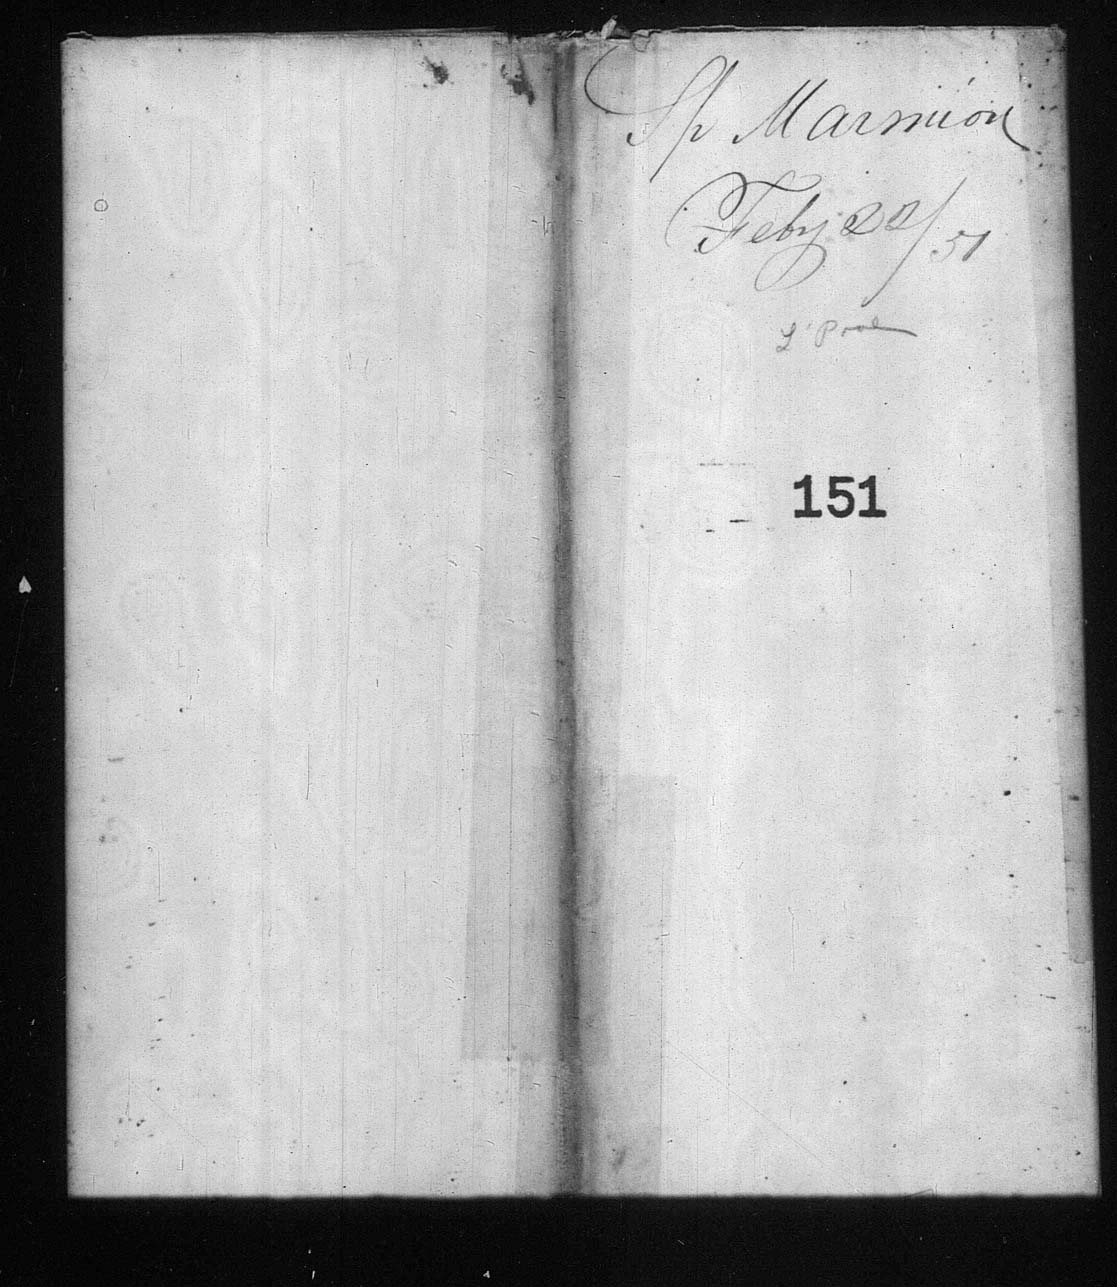 Sp Marmion
Feby 22/51
L'Pool
151